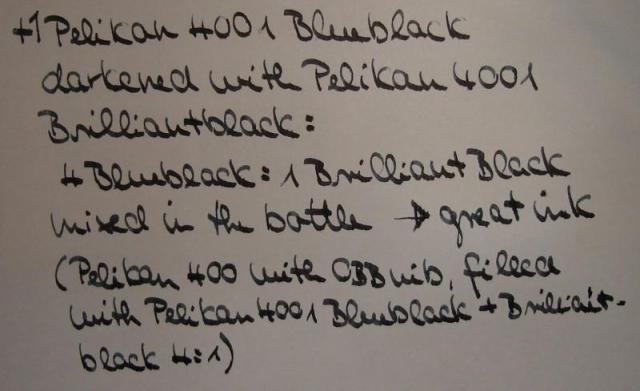 +1 Pelikan 4001 Blueblack
darkened with Pelikan 4001
Brilliantblack:
4 Blueblack: 1 Brilliant Black
mixed in the bottle → great ink
(Pelikan 400 with OBB nib, filled
with Pelikan 4001 Blueblack + Brilliant-
black 4:1)